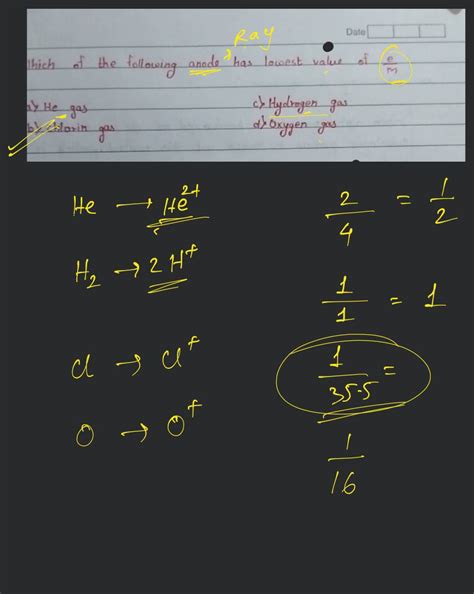 Date
Ray
Which of the following anode has lowest value of e/m
a) He gas
c) Hydrogen gas
b) Chlorin gas
d) Oxygen gas
He → He²⁺
2/4 = 1/2
H₂ → 2H⁺
1/1 = 1
Cl → Cl⁺
1/35.5 =
O → O⁺
1/16